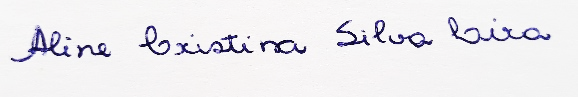 Aline Cristina Silva Lira